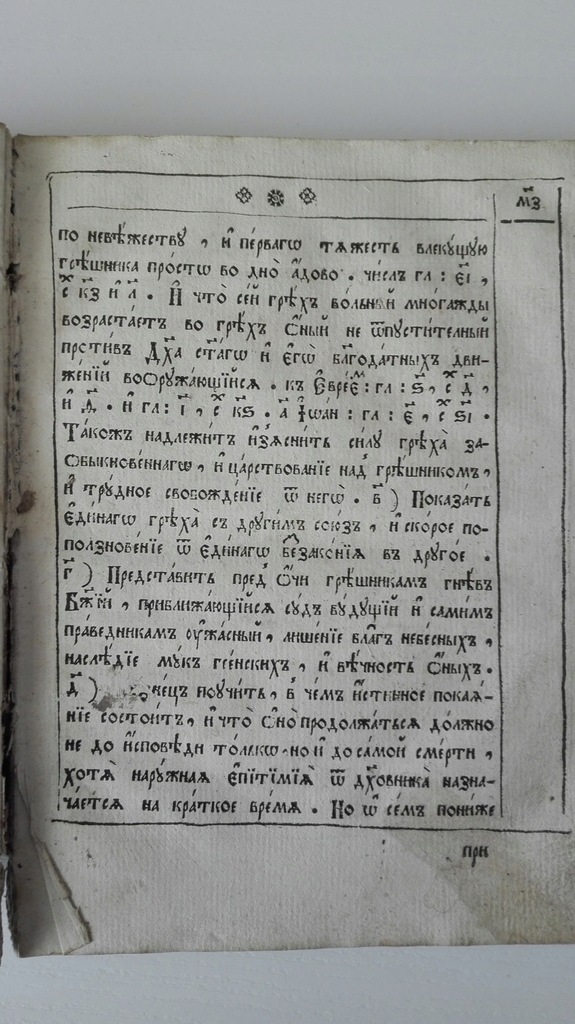 м҃з
по невѣ́жеству , и҆ пе́рвагѡ тѧ́жесть влеку́щую
грѣ́шника про́стѡ во дно̀ а҆́дово . числъ гл : є҃і ,
с к҃з и҆ л҃ . И҆ что̀ се́й грѣ́хъ во́льный многа́жды
возраста́етъ во грѣ́хъ Ѻ҆́ный не ѿпусти́телный
про́тивъ Дх҃а ст҃а́гѡ и҆ є҆гѡ̀ бл҃года́тныхъ дви-
же́нїй воѻружа́ющїйсѧ . къ Є҆вре́є : гл : ѕ҃ , с д҃ ,
и҆ л҃ . и҆ гл : і҃ , с к҃ѕ . а҆ І҆ѡа́н : гл : є҃ , с ѕ҃і .
Та́кожъ надлежи́тъ и҆з̾ѧсни́ть си́лу грѣха̀ за-
ѻбыкнове́ннагѡ , и҆ ца́рствованїе над̾ грѣ́шникомъ ,
и҆ тру́дное свобожде́нїе ѿ негѡ̀ . в҃ ) Показа́ть
є҆ди́нагѡ грѣха̀ съ други́мъ сою́зъ , и҆ ско́рое по-
ползнове́нїе ѿ є҆ди́нагѡ беззако́нїѧ въ друго́е .
г҃ ) Предста́вить пред̾ Ѻ҆́чи грѣ́шникамъ гнѣ́въ
Бж҃їй , приближа́ющїйсѧ су́дъ бу́дущїй и҆ сами́мъ
пра́ведникамъ ѹ҆жа́сный , лише́нїе бла́гъ небе́сныхъ ,
наслѣ́дїе му́къ гее́нскихъ , и҆ вѣ́чность Ѻ҆́ныхъ .
д҃ ) поучи́ть , в̾ че́мъ и҆́стинное пока́ѧ-
нїе состои́тъ , и҆ что̀ Ѻ҆но̀ продолжа́тьсѧ должно̀
не до и҆́сповѣди то́лькѡ но и҆ до са́мой сме́рти ,
хотѧ̀ нару́жнаѧ є҆пїтїмі́ѧ ѿ дх҃о́вника назна-
ча́етсѧ на кра́ткое вре́мѧ . Но ѡ҆ се́мъ пони́же
при